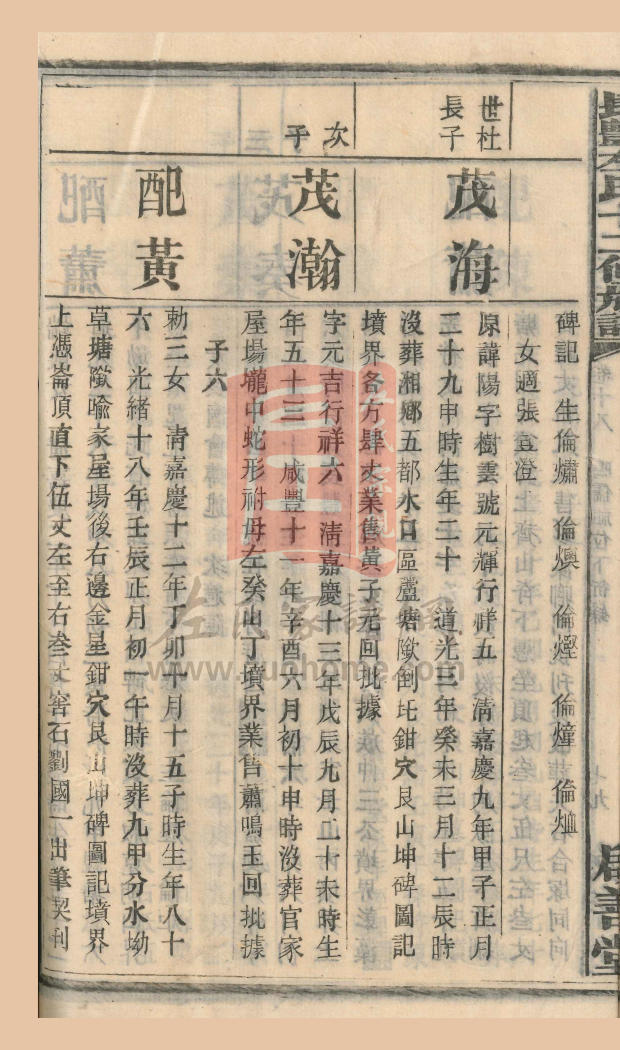 碑記　生倫爌　倫燠　倫煙　倫煄　倫爐
女適張宣澄
世杜長子
茂海
原諱陽字樹雲號元輝行祥五　清嘉慶九年甲子正月
二十九申時生年二十　道光三年癸未三月十二辰時
沒葬湘鄉五都水口區蘆塘𡑞創圫鉗穴艮山坤碑圖記
墳界各方肆丈業售黃子元回批據
次子
茂瀚
字元吉行祥六　清嘉慶十三年戊辰九月二十未時生
年五十三　咸豐十一年辛酉六月初十申時沒葬官家
屋場壠中蛇形祔母左癸山丁墳界業售蕭鳴玉回批據
子六
配黃
勅三女　清嘉慶十二年丁卯十月十五子時生年八十
六　光緒十八年壬辰正月初一午時沒葬九甲分水坳
草塘喻家屋場後右邊金星鉗穴艮山坤碑圖記墳界
上憑崙頂直下伍丈左至右叁丈窖石劉國一出筆契刋
左氏家譜網
www.zuohome.com